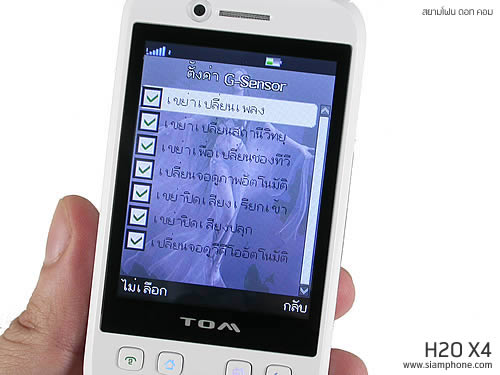 สยามโฟน ดอท คอม
ตั้งค่า G-Sensor
เขย่าเปลี่ยนเพลง
เขย่าเปลี่ยนสถานีวิทยุ
เขย่าเพื่อเปลี่ยนช่องทีวี
เปลี่ยนจอดูภาพอัตโนมัติ
เขย่าปิดเสียงเรียกเข้า
เขย่าปิดเสียงปลุก
เปลี่ยนจอดูวีดีโออัตโนมัติ
ไม่เลือก
กลับ
TOM
H20 X4
www.siamphone.com